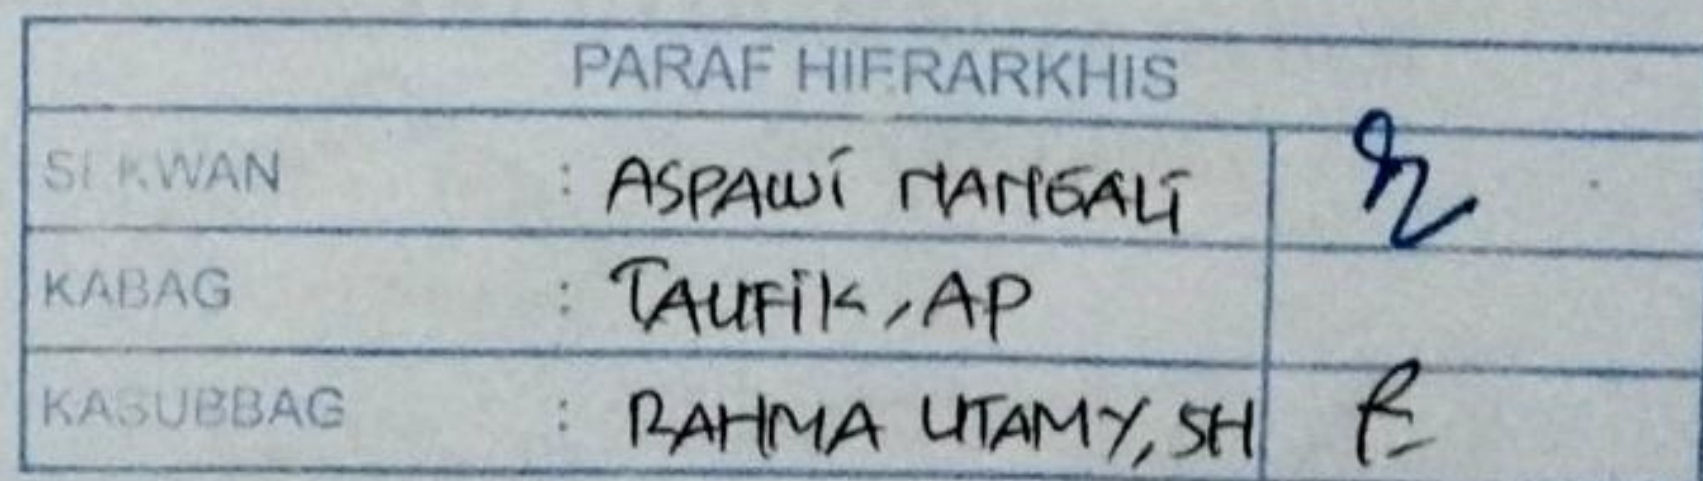 PARAF HIERARKHIS
SEKWAN : ASPAWI NANGALI
KABAG : TAUFIK, AP
KASUBBAG : RAHMA UTAMY, SH